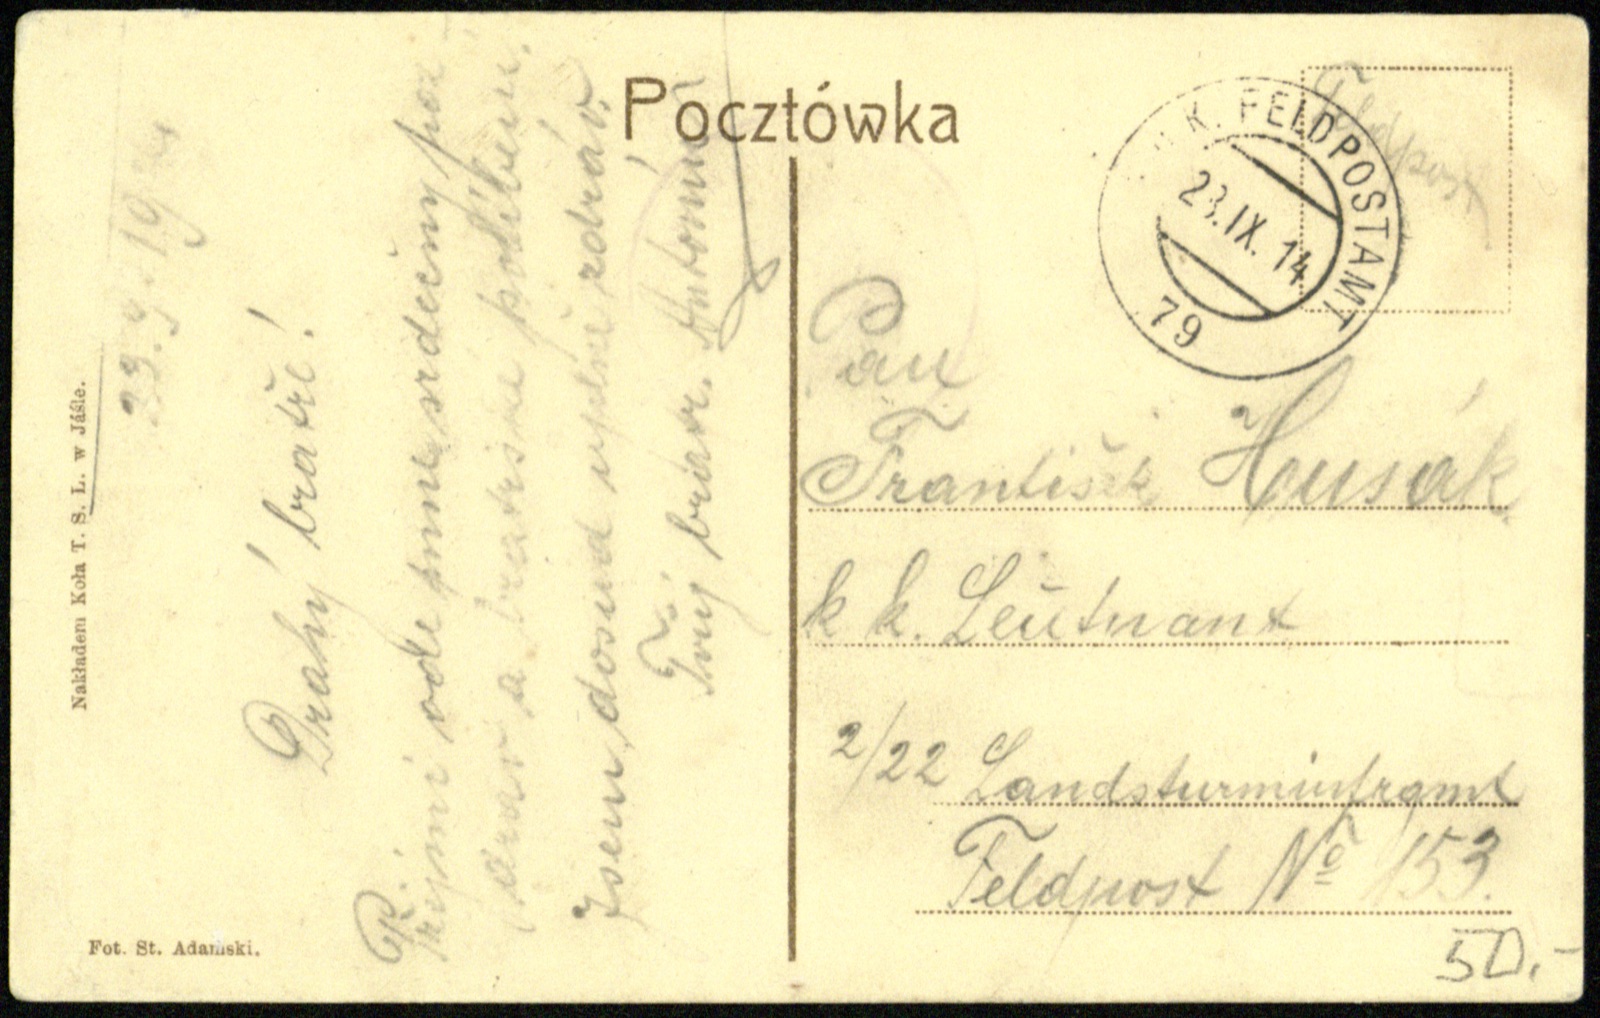 Pocztówka
K. FELDPOSTAMT
23.IX.14
79
Feldpost
Pan
František Husák
k k. Leutnant
2/22 Landsturminfrgmt
Feldpost No 153.
50.-
23.9.19
Drahý bratře!
Přijmi ode mne srdečný poz-
drav a bratrské políbení.
Jsem dosud úplně zdráv.
Tvůj bratr. Antonín
Nakładem Koła T. S. L. w Jaśle.
Fot. St. Adamski.